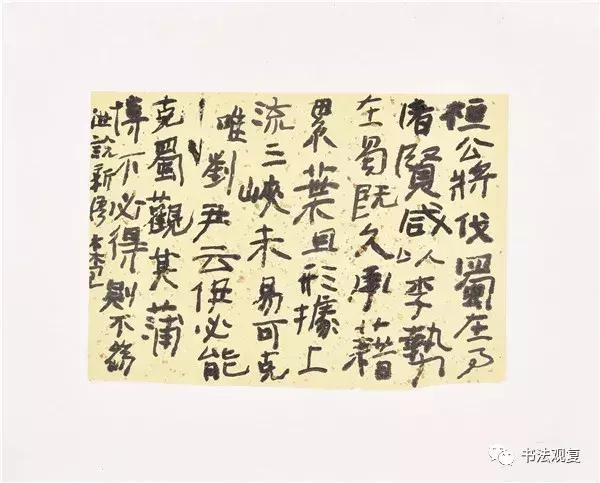 桓公將伐蜀在事
諸賢咸以李勢
在蜀既久承藉
累葉且形據上
流三峽未易可克
唯劉尹云伊必能
克蜀觀其蒲
博不必得則不為
世說新語
书法观复